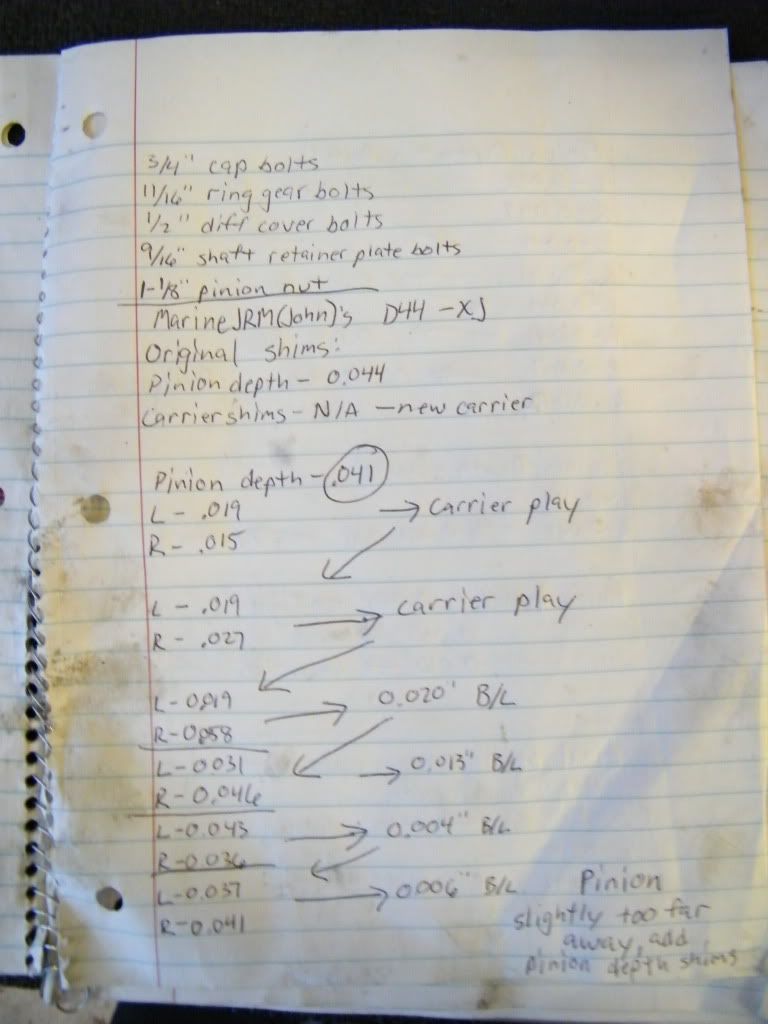 3/4" cap bolts
11/16" ring gear bolts
1/2" diff cover bolts
9/16" shaft retainer plate bolts
1-1/8" pinion nut
MarineJRM(John)'s D44 -XJ
Original shims:
Pinion depth - 0.044
Carrier shims - N/A - new carrier
Pinion depth - .041
L - .019 → carrier play
R - .015
L - .019 → carrier play
R - .027
L - 0.019 → 0.020" B/L
R - 0.058
L - 0.031 → 0.013" B/L
R - 0.046
L - 0.043 → 0.004" B/L
R - 0.036
L - 0.037 → 0.006" B/L
R - 0.041
Pinion
slightly too far
away, add
pinion depth shims